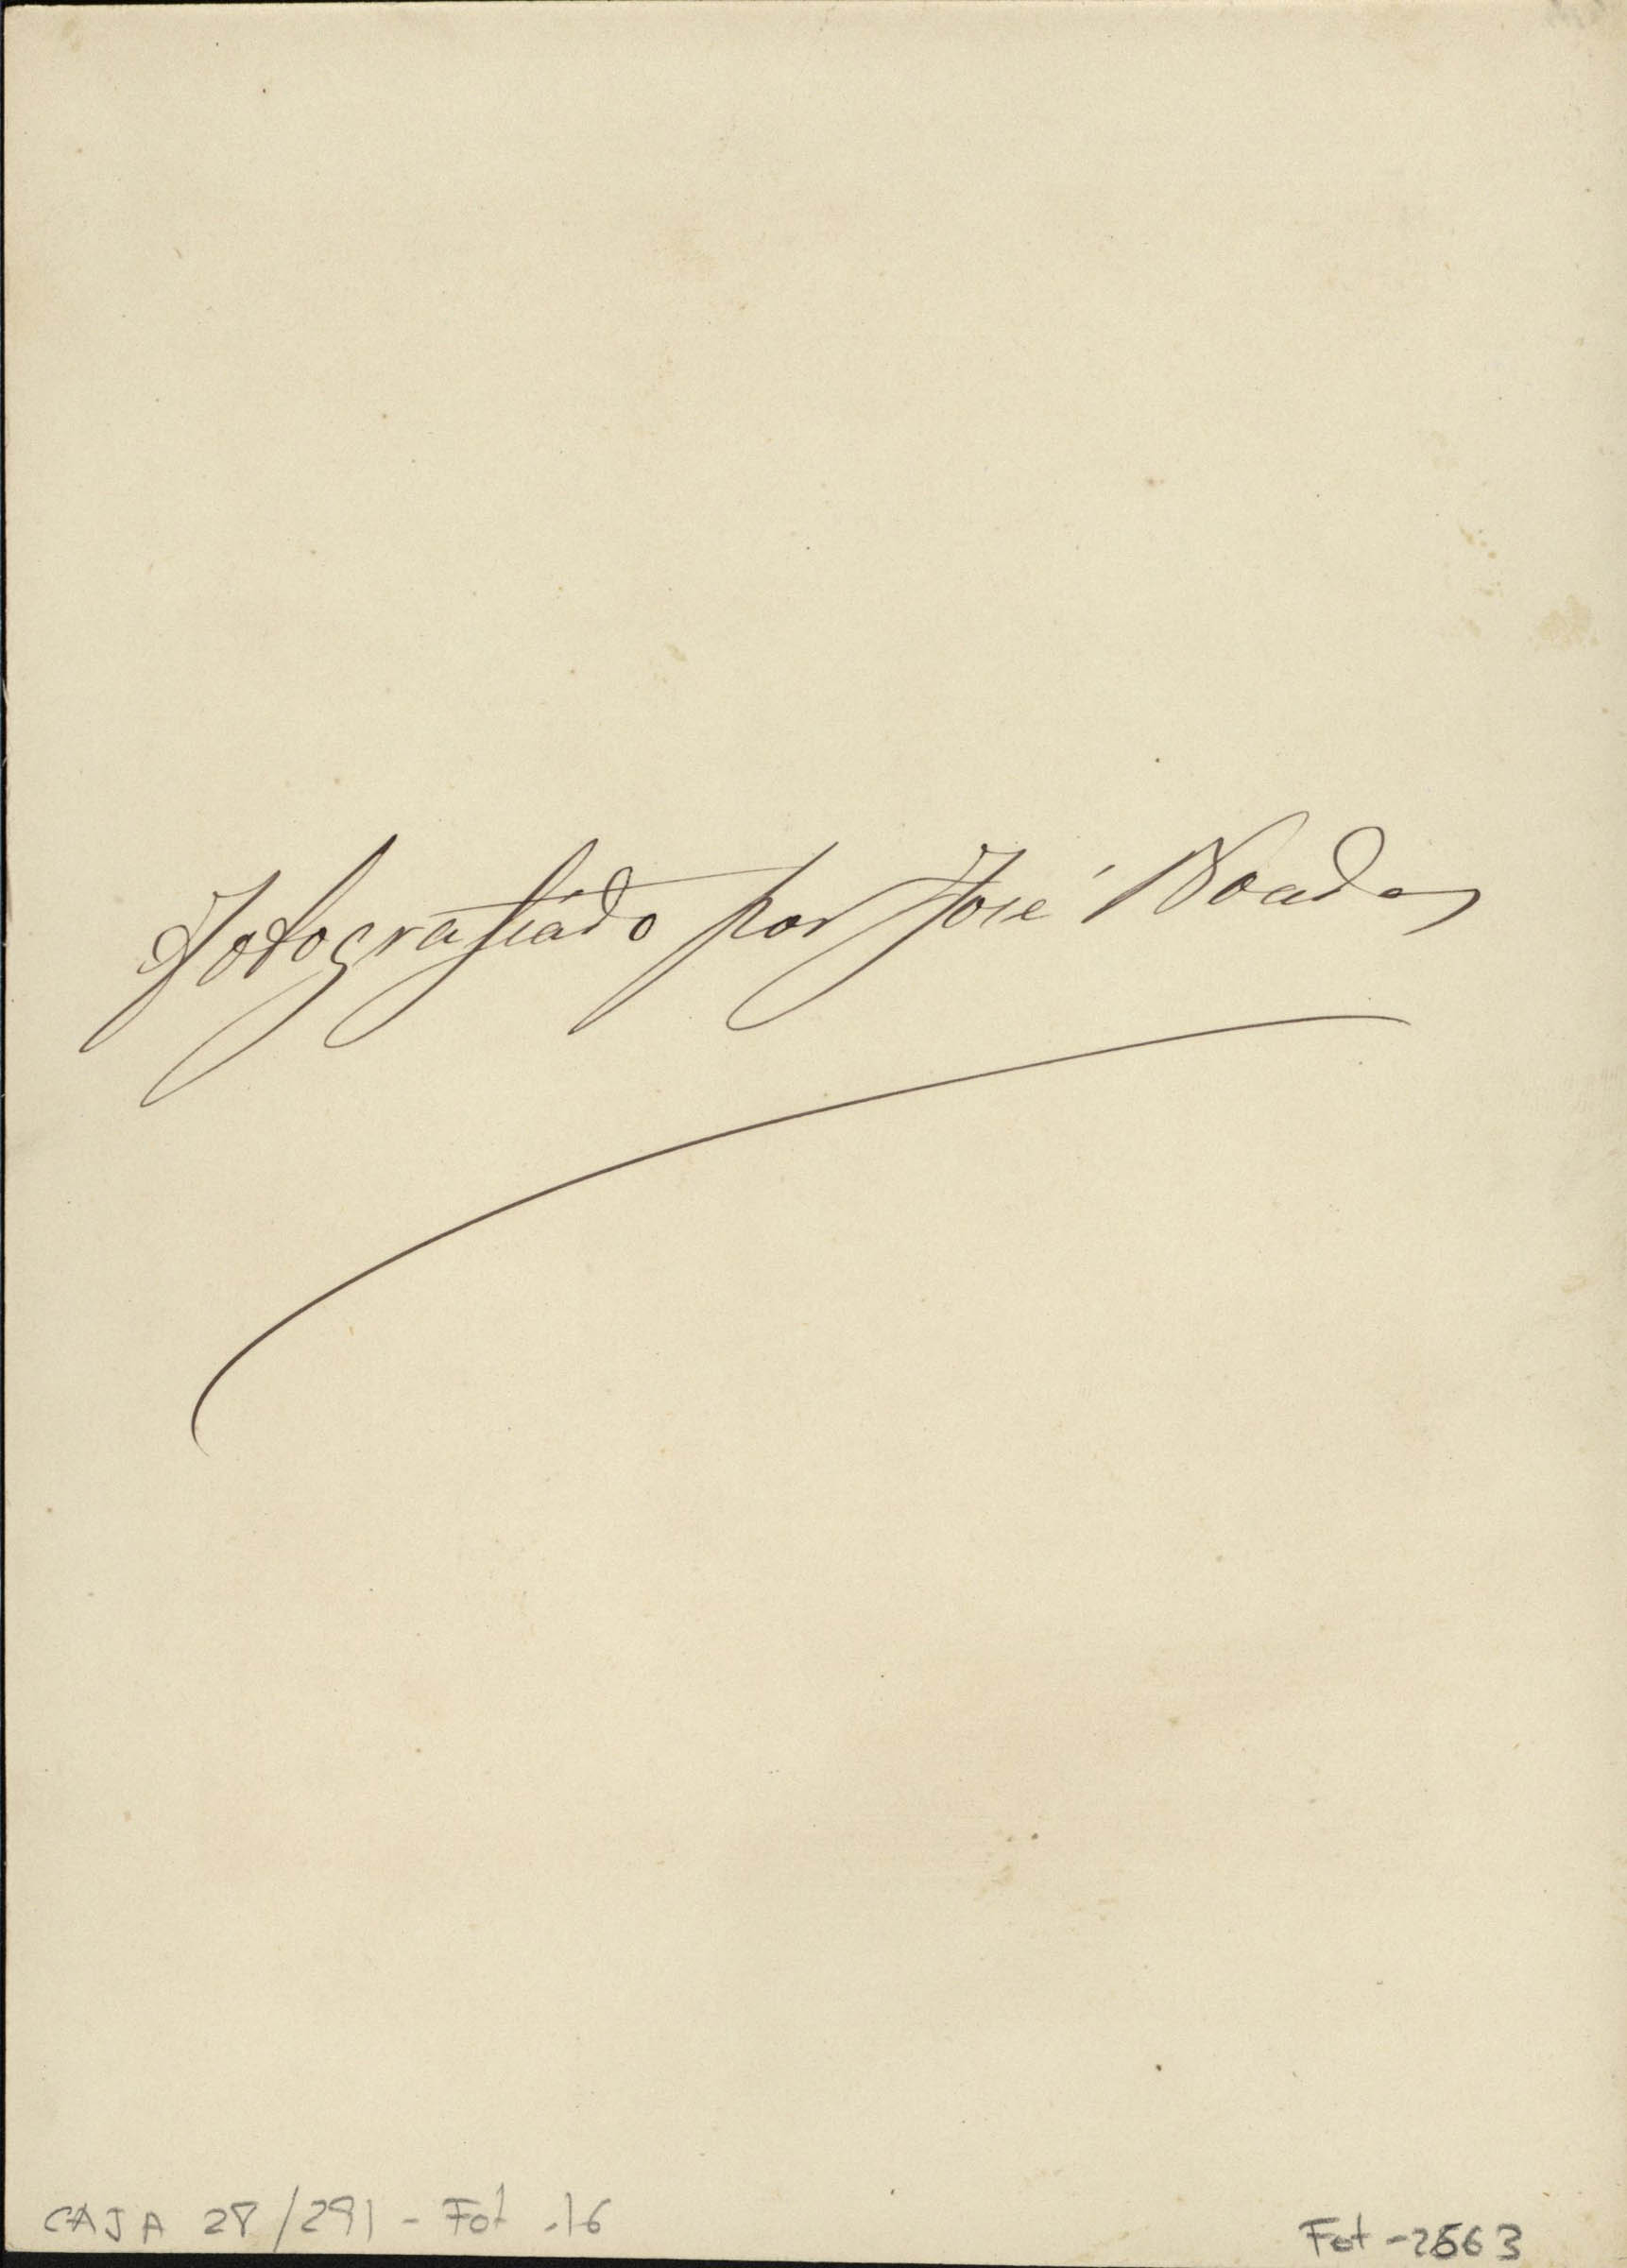 Fotografiado por José Boada
CAJA 28/291 - Fot .16
Fot-2563